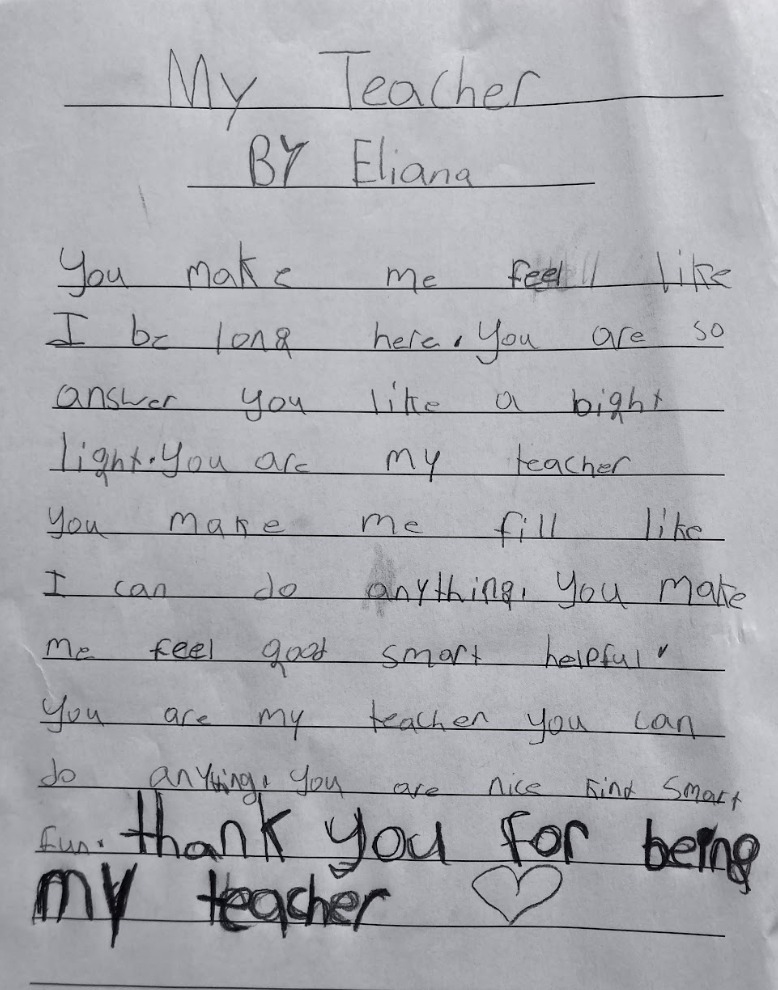 My Teacher
BY Eliana
You make me feel like
I be long here. You are so
answer you like a bight
light. You are my teacher
you make me fill like
I can do anything. You make
me feel good smart helpful.
you are my teacher you can
do anything. You are nice kind smart
fun. thank you for being
my teacher